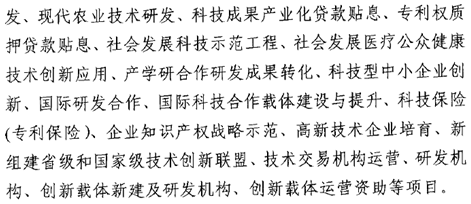 发、现代农业技术研发、科技成果产业化贷款贴息、专利权质
押贷款贴息、社会发展科技示范工程、社会发展医疗公众健康
技术创新应用、产学研合作研发成果转化、科技型中小企业创
新、国际研发合作、国际科技合作载体建设与提升、科技保险
(专利保险)、企业知识产权战略示范、高新技术企业培育、新
组建省级和国家级技术创新联盟、技术交易机构运营、研发机
构、创新载体新建及研发机构、创新载体运营资助等项目。